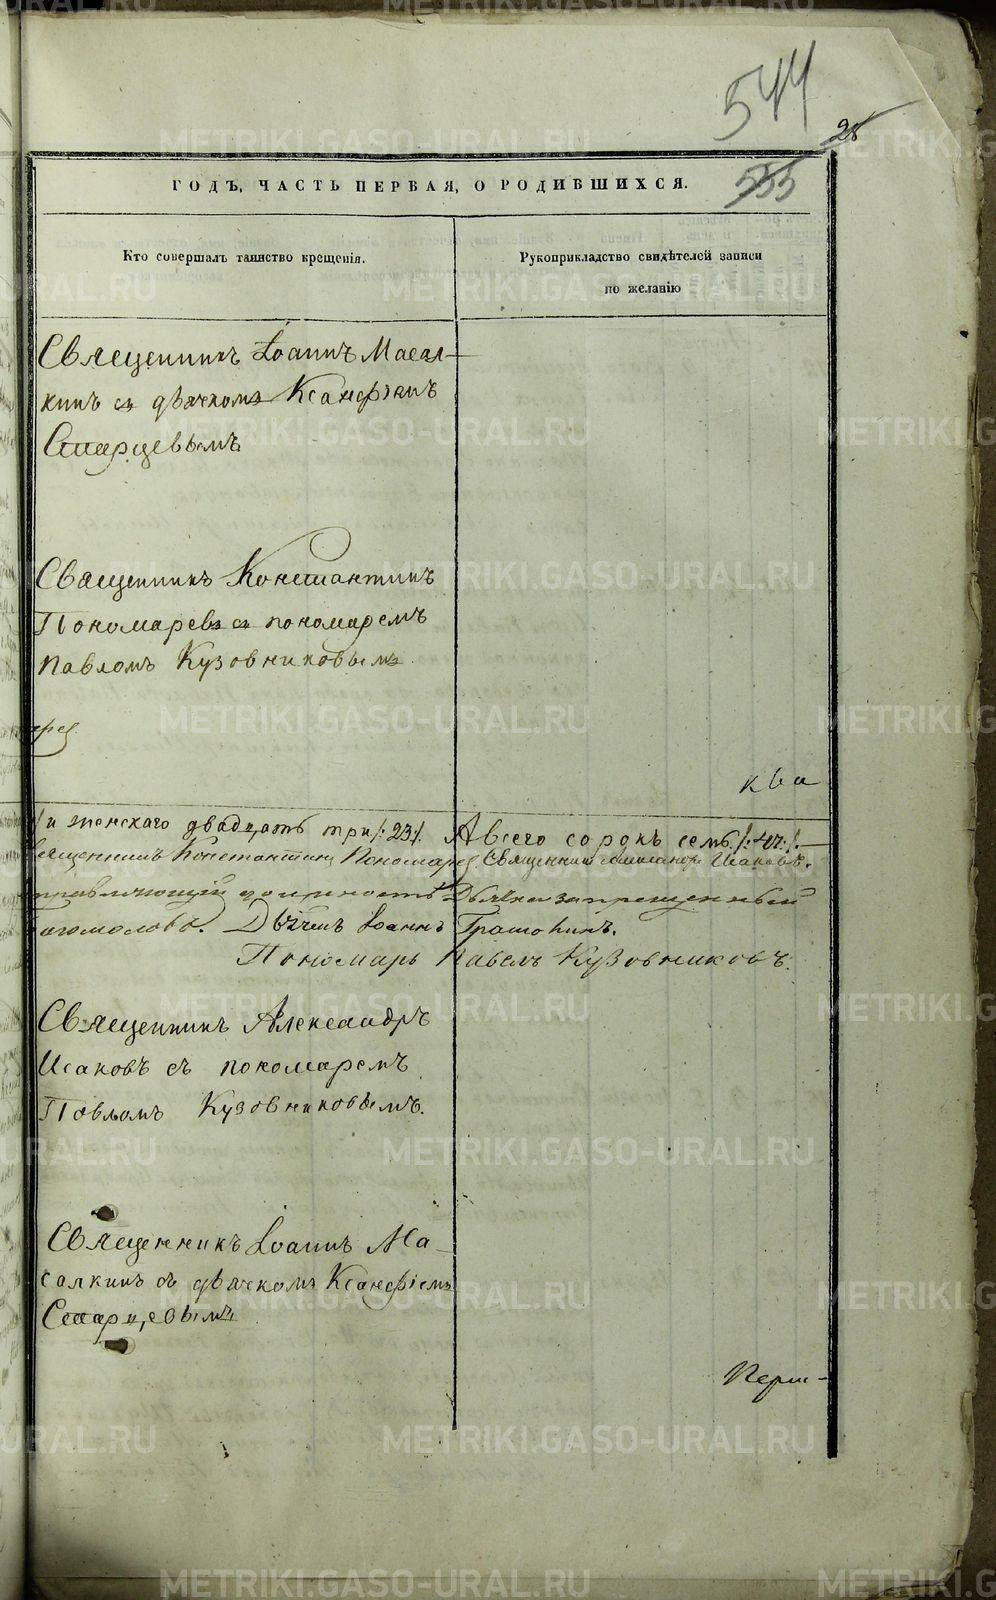 544
28
555
ГОДЪ, ЧАСТЬ ПЕРВАЯ, О РОДИВШИХСЯ.
Кто совершалъ таинство крещенія.
Рукоприкладство свидѣтелей записи
по желанію
Священникъ Іоаннъ Масал-
кинъ съ дьячкомъ Ксанфіемъ
Старцевымъ
Священникъ Константинъ
Пономаревъ съ пономаремъ
Павломъ Кузовниковымъ
ква
и женскаго двадцать три /:23:/. А всего сорокъ семь /:47:/.
Священникъ Константинъ Пономаревъ Священникъ Александръ Исаковъ.
должность Дьячка запрещенный
Богомоловъ. Дьячекъ Іоаннъ
Пономарь Павелъ Кузовниковъ.
Священникъ Александръ
Исаковъ съ пономаремъ
Павломъ Кузовниковымъ.
Священникъ Іоаннъ Ма-
салкинъ съ дьячкомъ Ксанфіемъ
Старцевымъ
METRIKI.GASO-URAL.RU